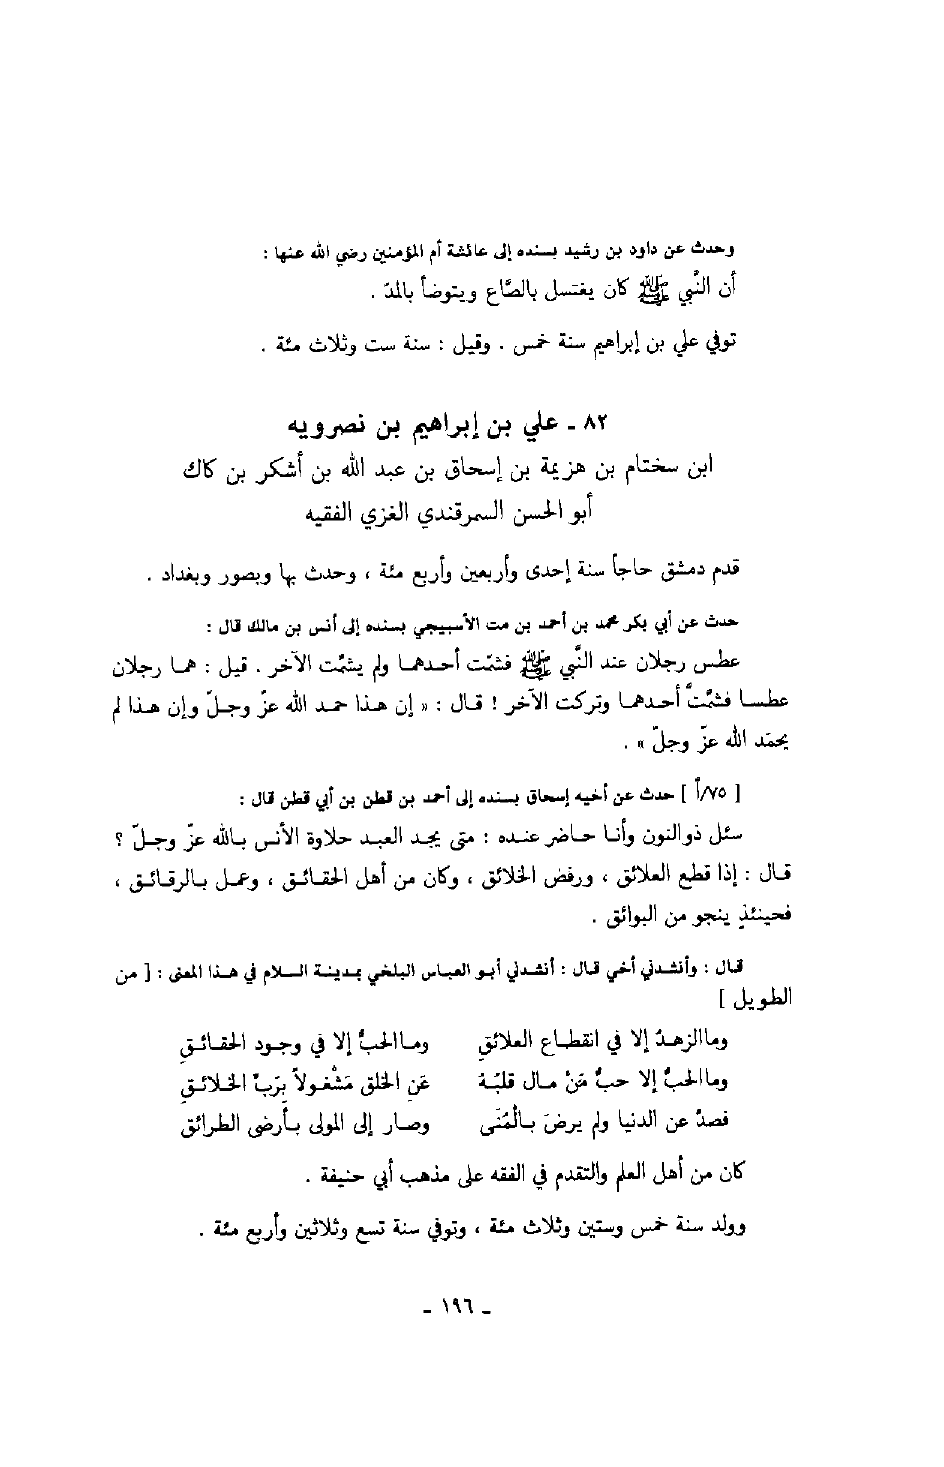 وحدث عن داود بن رشيد بسنده إلى عائشة أم المؤمنين رضي الله عنها :
أن النَّبي ﷺ كان يغتسل بالصَّاع ويتوضأ بالمدّ .
توفي علي بن إبراهيم سنة خمس . وقيل : سنة ست وثلاث مئة .
٨٢ ـ علي بن إبراهيم بن نصرويه
ابن سختام بن هزيمة بن إسحاق بن عبد الله بن أشكر بن كاك
أبو الحسن السمرقندي الغزي الفقيه
قدم دمشق حاجاً سنة إحدى وأربعين وأربع مئة ، وحدث بها وبصور وبغداد .
حدث عن أبي بكر محمد بن أحمد بن مت الأسبيجي بسنده إلى أنس بن مالك قال :
عطس رجلان عند النَّبي ﷺ فشمّت أحدهما ولم يشمِّت الآخر . قيل : هما رجلان
عطسا فشمَّتَّ أحدهما وتركت الآخر ! قال : « إن هذا حمد الله عزّ وجلّ وإن هذا لم
يحمَد الله عزّ وجلّ » .
[ ٧٥/أ ] حدث عن أخيه إسحاق بسنده إلى أحمد بن قطن بن أبي قطن قال :
سئل ذو النون وأنا حاضر عنده : متى يجد العبد حلاوة الأنس بالله عزّ وجلّ ؟
قال : إذا قطع العلائق ، ورفض الخلائق ، وكان من أهل الحقائق ، وعمل بالرقائق ،
فحينئذٍ ينجو من البوائق .
قال : وأنشدني أخي قال : أنشدني أبو العباس البلخي بمدينة السلام في هذا المعنى : [ من
الطويل ]
وما الزهدُ إلا في انقطاع العلائقِ وما الحبُّ إلا في وجود الحقائقِ
وما الحبُّ إلا حبُّ مَنْ مال قلبُهُ عَنِ الخلق مَشْغولاً بِرَبِّ الخلائقِ
فصدَّ عن الدنيا ولم يرضَ بالمُنَى وصار إلى المولى بأرضى الطرائق
كان من أهل العلم والتقدم في الفقه على مذهب أبي حنيفة .
وولد سنة خمس وستين وثلاث مئة ، وتوفي سنة تسع وثلاثين وأربع مئة .
ـ ١٩٦ ـ